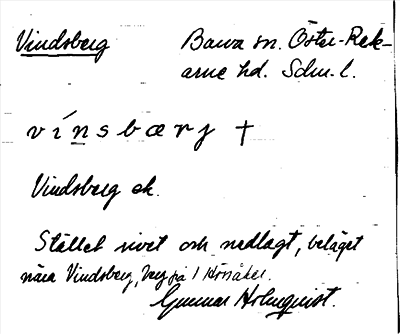 Vindsberg Barva sn. Öster-Rek-
arne hd. Sdm. l.
vínsbærj †
Vindsberg ek.
Stället rivet och nedlagt, beläget
nära Vindsberg, på 1
Gunnar Holmquist.